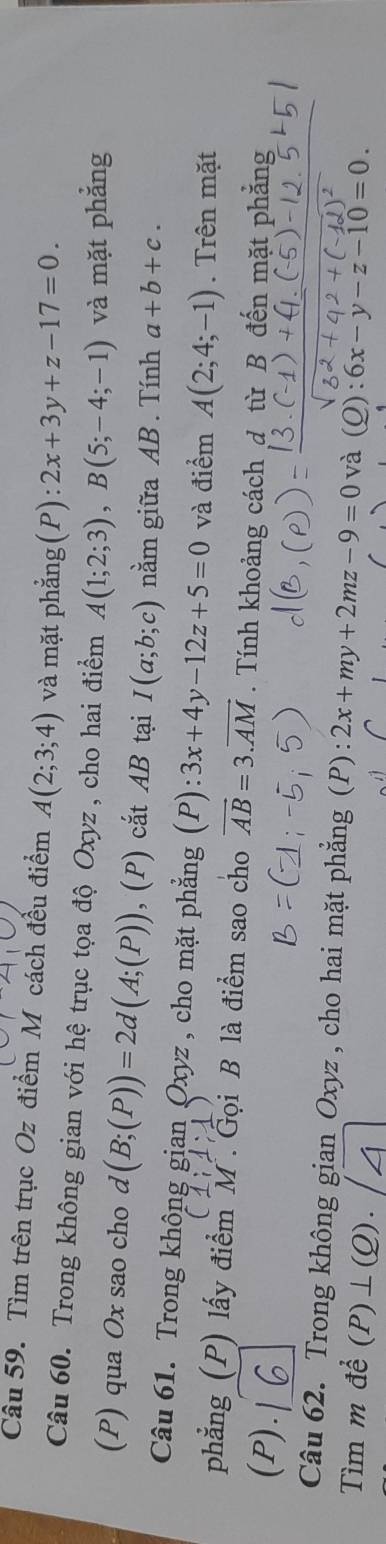 Câu 59. Tìm trên trục Oz điểm M cách đều điểm A(2;3;4) và mặt phẳng(P):2x+3y+z−17=0.
Câu 60. Trong không gian với hệ trục tọa độ Oxyz, cho hai điểm A(1;2;3), B(5;−4;−1) và mặt phẳng
(P) qua Ox sao cho d(B;(P))=2d(A;(P)), (P) cắt AB tại I(a;b;c) nằm giữa AB. Tính a+b+c.
Câu 61. Trong không gian Oxyz, cho mặt phẳng (P):3x+4y−12z+5=0 và điểm A(2;4;−1). Trên mặt
(1;1;1)
phẳng (P) lấy điểm M. Gọi B là điểm sao cho \overrightarrow{AB}=3.\overrightarrow{AM}. Tính khoảng cách d từ B đến mặt phẳng
(P). 6
B=(-1;-5;5) d(B,(P))=\frac{|3.(-1)+4.(-5)-12.5+5|}{\sqrt{3^2+4^2+(-12)^2}}
Câu 62. Trong không gian Oxyz, cho hai mặt phẳng (P):2x+my+2mz−9=0 và (Q):6x−y−z−10=0.
Tìm m để (P)⊥(Q). 4